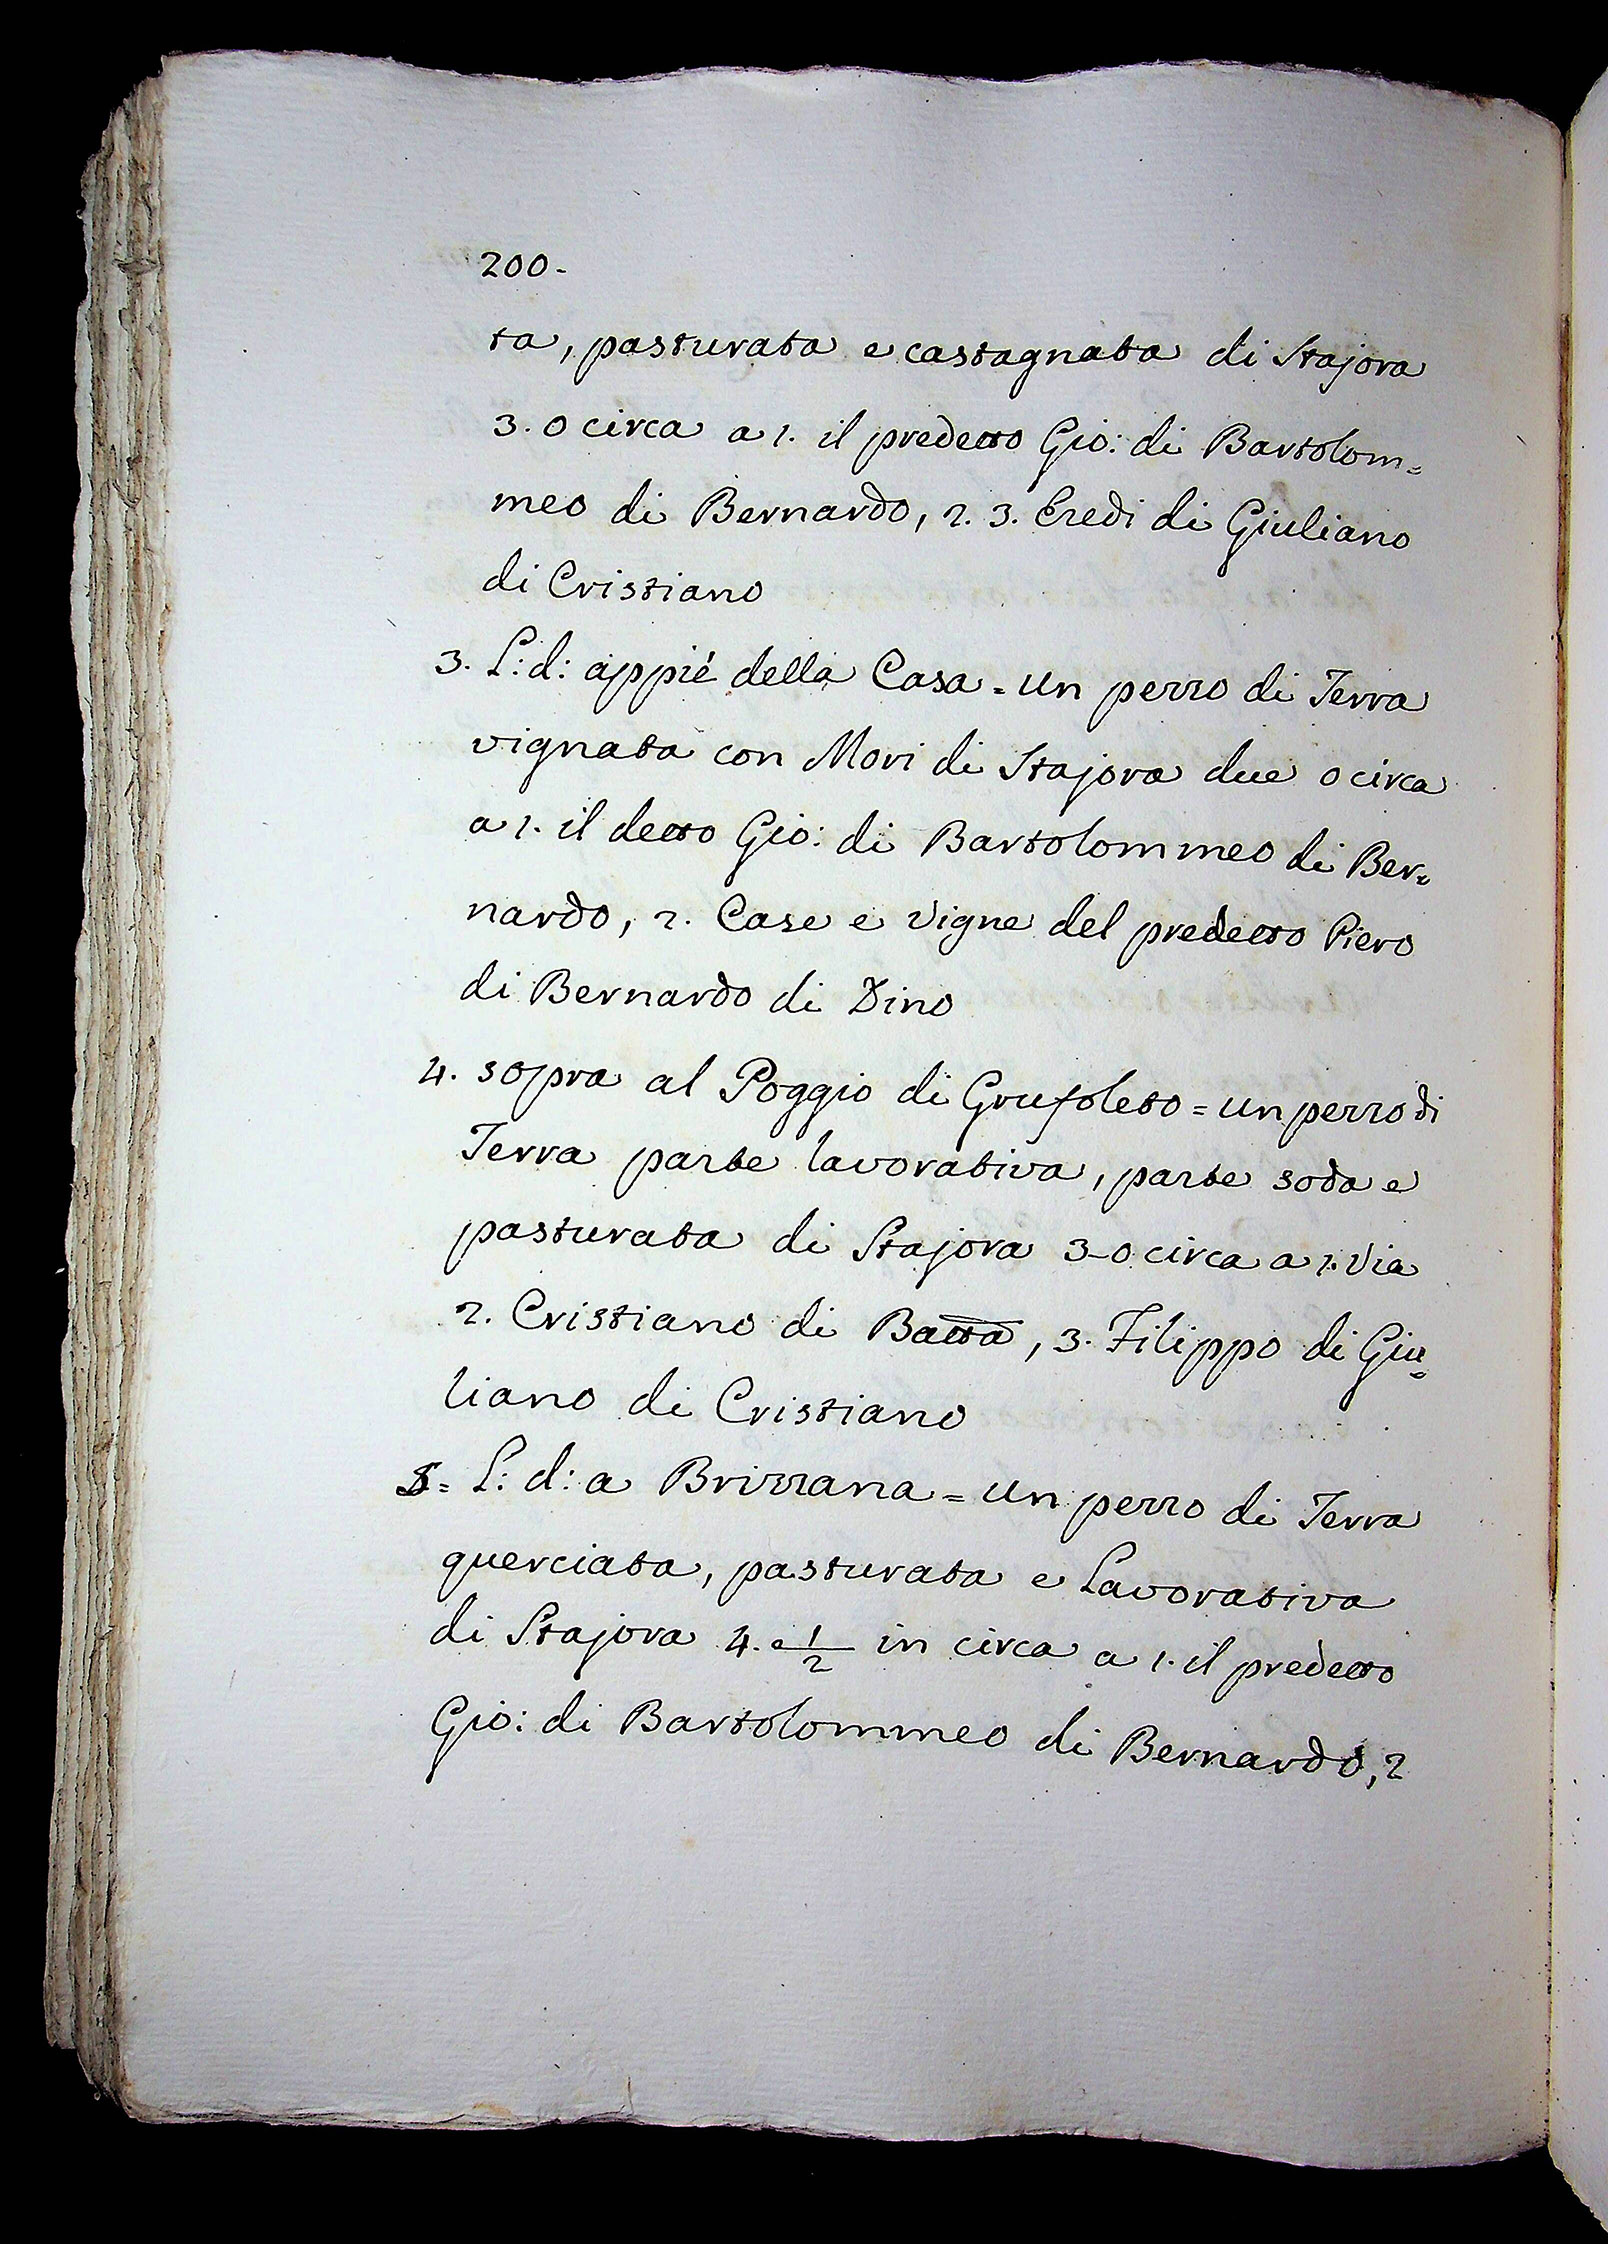 200.
ta, pasturata e castagnata di Stajora
3. o circa a 1. il predetto Gio: di Bartolom=
meo di Bernardo, 2. 3. Eredi di Giuliano
di Cristiano
3. L: d: appié della Casa = un pezzo di Terra
vignata con Mori di Stajora due o circa
a 1. il detto Gio: di Bartolommeo di Ber=
nardo, 2. Case e vigne del predetto Piero
di Bernardo di Dino
4. sopra al Poggio di Grufoleto = un pezzo di
Terra parte lavorativa, parte soda e
pasturata di Stajora 3-o circa a 1. Via
2. Cristiano di Batta, 3. Filippo di Giu=
liano di Cristiano
5= L: d: a Brizzana = un pezzo di Terra
querciata, pasturata e Lavorativa
di Stajora 4. e 1/2 in circa a 1. il predetto
Gio: di Bartolommeo di Bernardo, 2